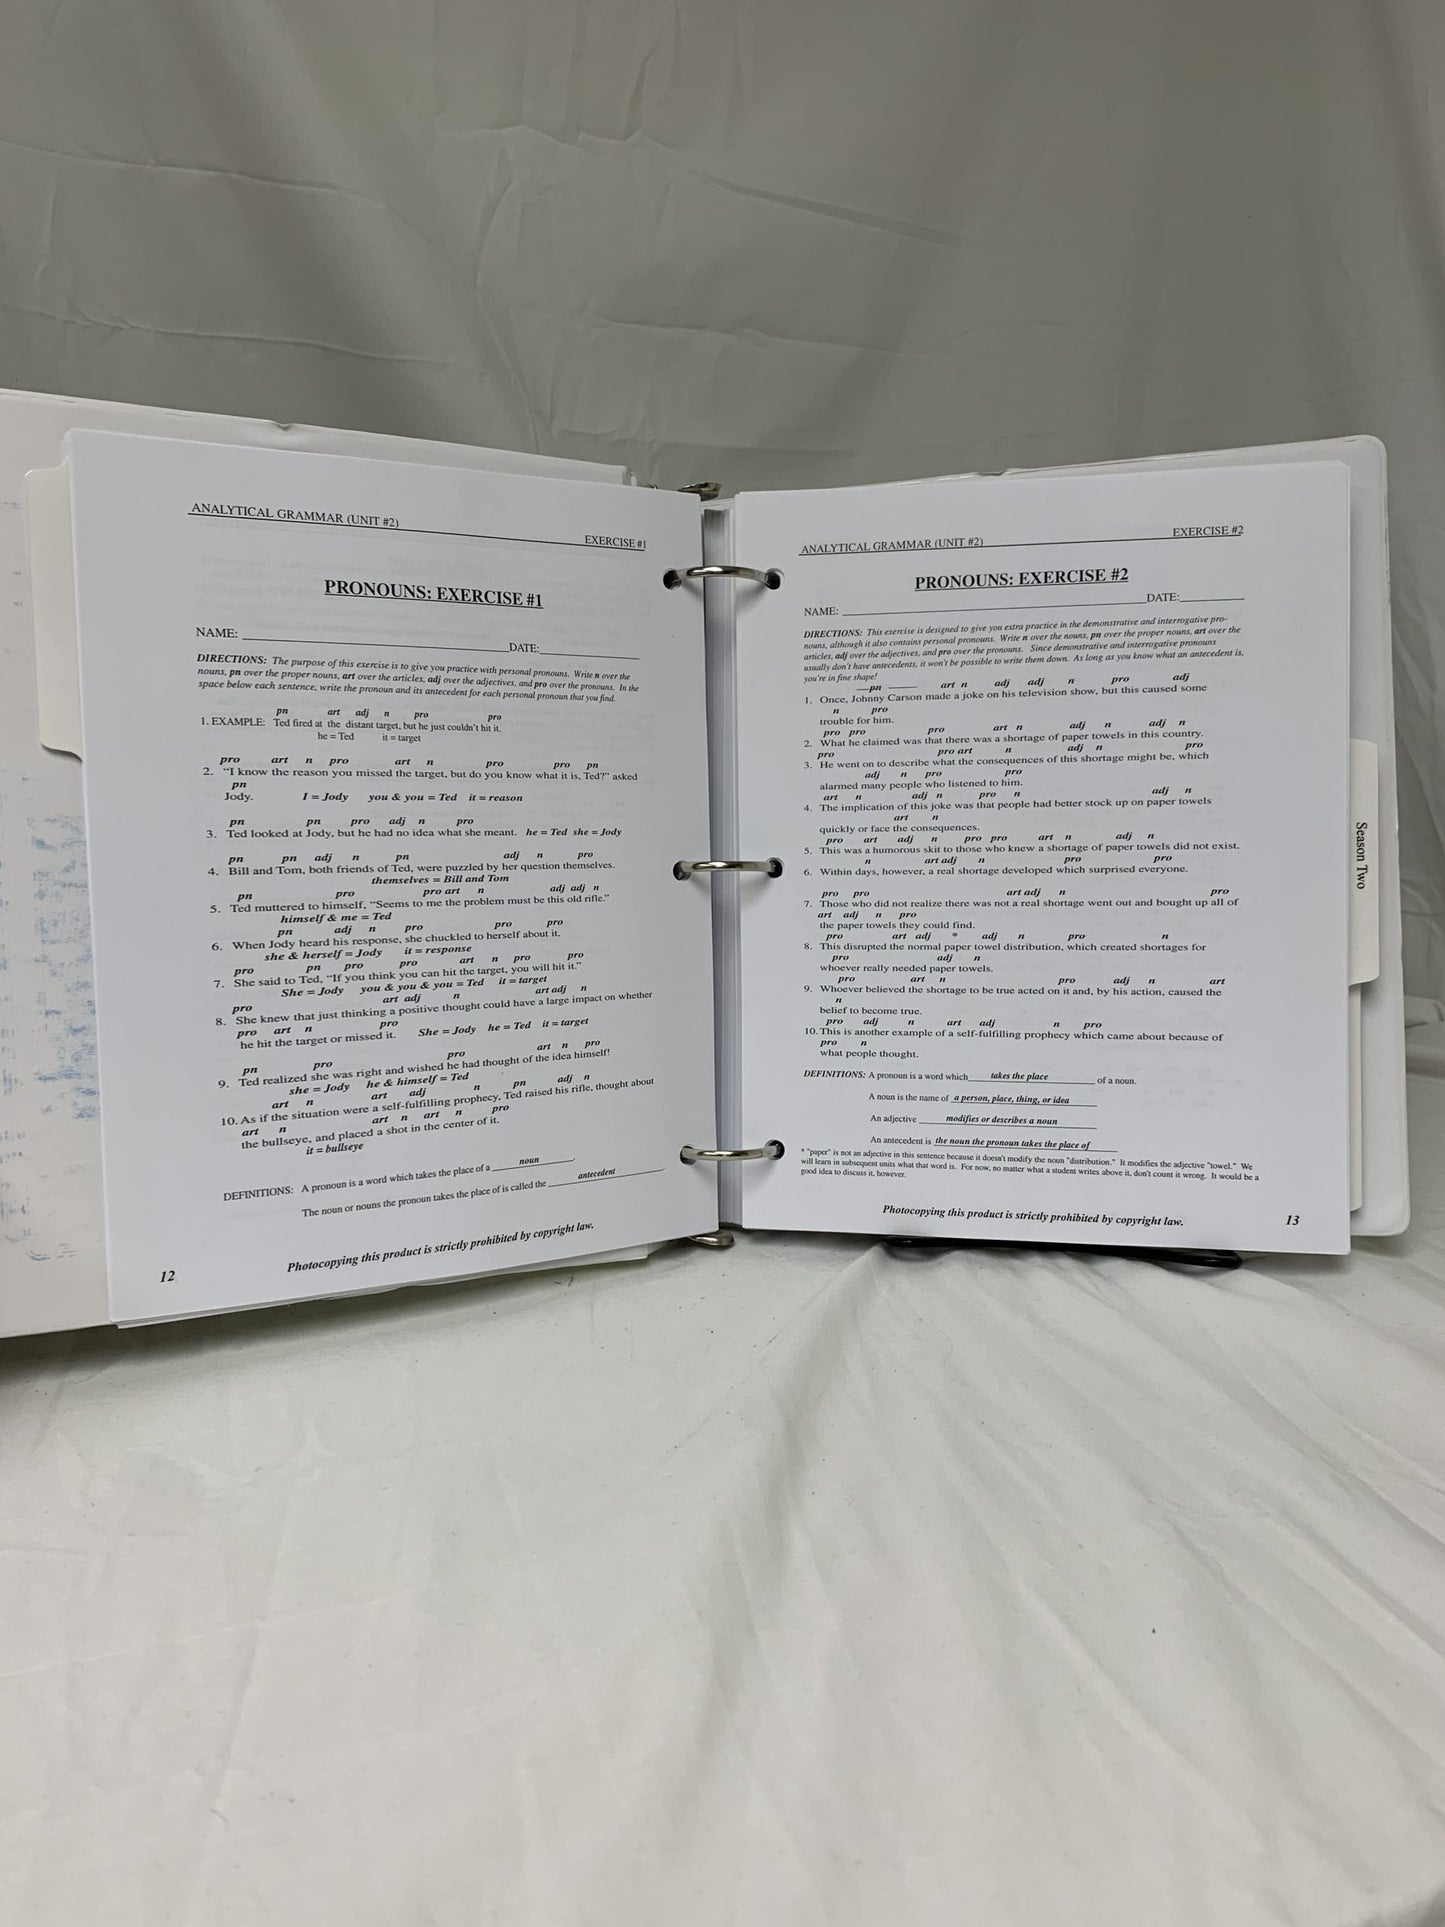 ANALYTICAL GRAMMAR (UNIT #2)
EXERCISE #1
PRONOUNS: EXERCISE #1
NAME: DATE:
DIRECTIONS: The purpose of this exercise is to give you practice with personal pronouns. Write n over the
nouns, pn over the proper nouns, art over the articles, adj over the adjectives, and pro over the pronouns. In the
space below each sentence, write the pronoun and its antecedent for each personal pronoun that you find.
pn art adj n pro pro
1. EXAMPLE: Ted fired at the distant target, but he just couldn't hit it.
he = Ted it = target
pro art n pro art n pro pro pn
2. "I know the reason you missed the target, but do you know what it is, Ted?" asked
pn
Jody. I = Jody you & you = Ted it = reason
pn pn pro adj n pro
3. Ted looked at Jody, but he had no idea what she meant. he = Ted she = Jody
pn pn adj n pn adj n pro
4. Bill and Tom, both friends of Ted, were puzzled by her question themselves.
themselves = Bill and Tom
pn pro pro art n adj adj n
5. Ted muttered to himself, "Seems to me the problem must be this old rifle."
himself & me = Ted
pn adj n pro pro pro
6. When Jody heard his response, she chuckled to herself about it.
she & herself = Jody it = response
pro pn pro pro art n pro pro
7. She said to Ted, "If you think you can hit the target, you will hit it."
She = Jody you & you & you = Ted it = target
pro art adj n art adj n
8. She knew that just thinking a positive thought could have a large impact on whether
pro art n pro
he hit the target or missed it. She = Jody he = Ted it = target
pn pro pro art n pro
9. Ted realized she was right and wished he had thought of the idea himself!
she = Jody he & himself = Ted
art n art adj n pn adj n
10. As if the situation were a self-fulfilling prophecy, Ted raised his rifle, thought about
art n art n art n pro
the bullseye, and placed a shot in the center of it.
it = bullseye
DEFINITIONS: A pronoun is a word which takes the place of a noun.
The noun or nouns the pronoun takes the place of is called the antecedent.
Photocopying this product is strictly prohibited by copyright law.
12
ANALYTICAL GRAMMAR (UNIT #2)
EXERCISE #2
PRONOUNS: EXERCISE #2
NAME: DATE:
DIRECTIONS: This exercise is designed to give you extra practice in the demonstrative and interrogative pro-
nouns, although it also contains personal pronouns. Write n over the nouns, pn over the proper nouns, art over the
articles, adj over the adjectives, and pro over the pronouns. Since demonstrative and interrogative pronouns
usually don't have antecedents, it won't be possible to write them down. As long as you know what an antecedent is,
you're in fine shape!
pn art n adj adj n pro adj
1. Once, Johnny Carson made a joke on his television show, but this caused some
n pro
trouble for him.
pro pro pro art n adj n adj n
2. What he claimed was that there was a shortage of paper towels in this country.
pro pro art n adj n pro
3. He went on to describe what the consequences of this shortage might be, which
adj n pro pro
alarmed many people who listened to him.
art n adj n pro n adj n
4. The implication of this joke was that people had better stock up on paper towels
art n
quickly or face the consequences.
pro art adj n pro pro art n adj n
5. This was a humorous skit to those who knew a shortage of paper towels did not exist.
n art adj n pro pro
6. Within days, however, a real shortage developed which surprised everyone.
pro pro art adj n pro
7. Those who did not realize there was not a real shortage went out and bought up all of
art adj n pro
the paper towels they could find.
pro art adj * adj n pro n
8. This disrupted the normal paper towel distribution, which created shortages for
pro adj n
whoever really needed paper towels.
pro art n pro adj n art
9. Whoever believed the shortage to be true acted on it and, by his action, caused the
n
belief to become true.
pro adj n art adj n pro
10. This is another example of a self-fulfilling prophecy which came about because of
pro n
what people thought.
DEFINITIONS: A pronoun is a word which takes the place of a noun.
A noun is the name of a person, place, thing, or idea
An adjective modifies or describes a noun
An antecedent is the noun the pronoun takes the place of
* "paper" is not an adjective in this sentence because it doesn't modify the noun "distribution." It modifies the adjective "towel." We
will learn in subsequent units what that word is. For now, no matter what a student writes above it, don't count it wrong. It would be a
good idea to discuss it, however.
Photocopying this product is strictly prohibited by copyright law.
13
Season Two